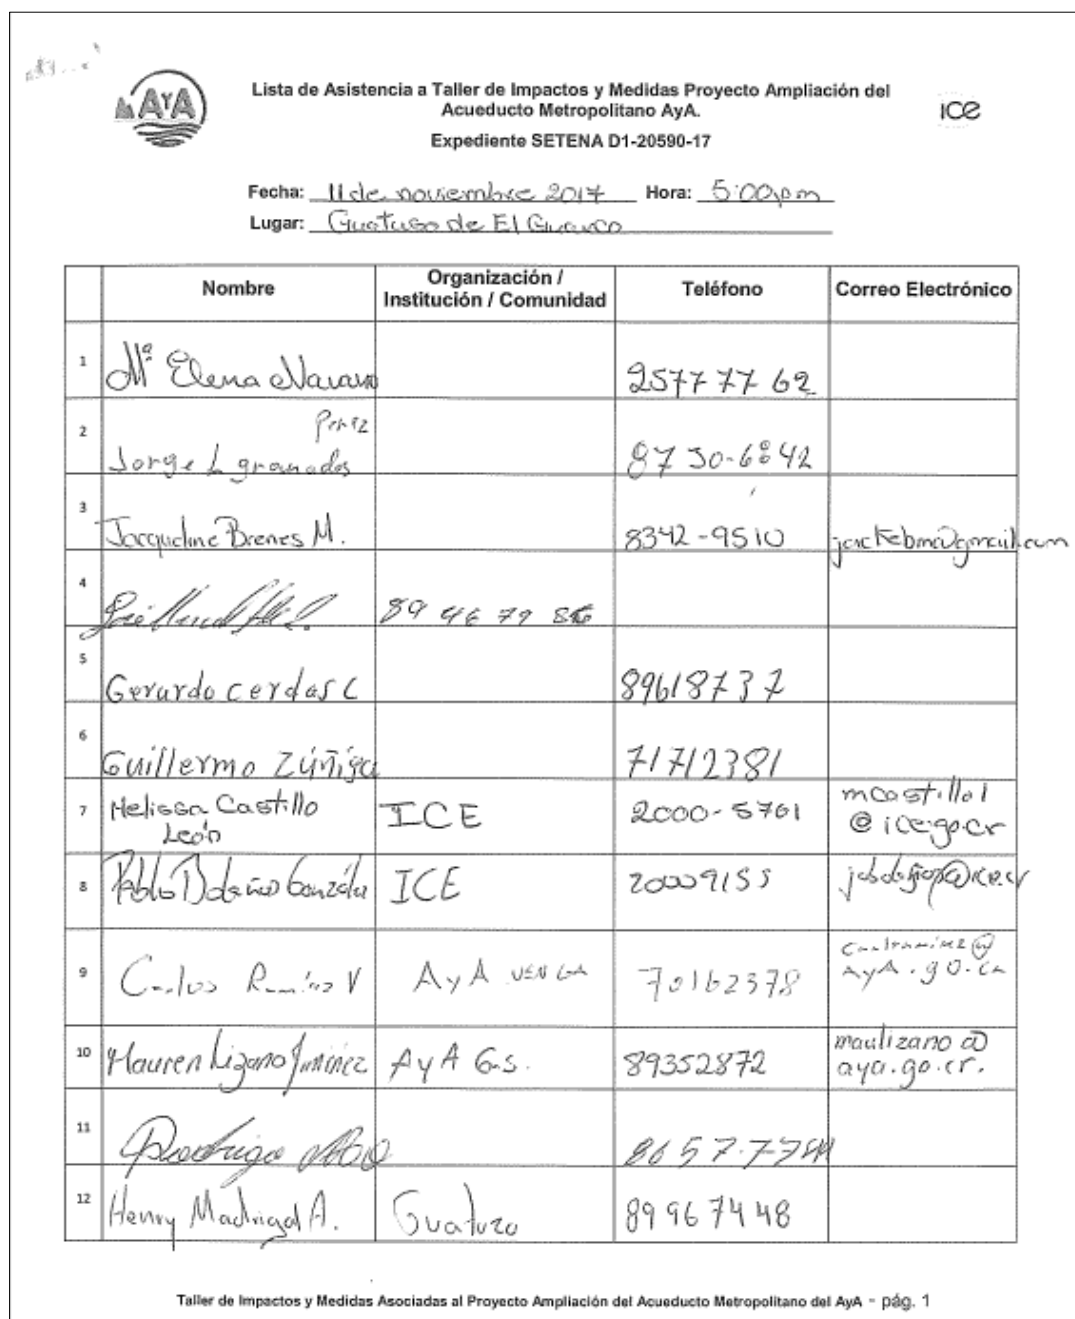 AYA
Lista de Asistencia a Taller de Impactos y Medidas Proyecto Ampliación del
Acueducto Metropolitano AyA.
ice
Expediente SETENA D1-20590-17
Fecha: 11 de noviembre 2017 Hora: 5:00pm
Lugar: Guatuso de El Guarco
Nombre Organización / Institución / Comunidad Teléfono Correo Electrónico
1 Mª Elena Navarro 25777762
2 Jorge L granados Perez
3 Jacqueline Brenes M. 8342-9510
4 89 46 79
5 Gerardo cerdas C 89618737
6 Guillermo Zúñiga 71712381
7 Melissa Castillo León ICE 2000-5761 mcastillol
@ice.go.cr
8 Pablo Bolaños González ICE 20009155
9 Carlos Ramírez V AyA 70162378
AyA.go.cr
10 Mauren Lizano Jiménez AyA G.S. 89352872 maulizano@
aya.go.cr.
11 Rodrigo
12 Henry Madrigal A. Guatuzo 89967448
Taller de Impactos y Medidas Asociadas al Proyecto Ampliación del Acueducto Metropolitano del AyA - pág. 1